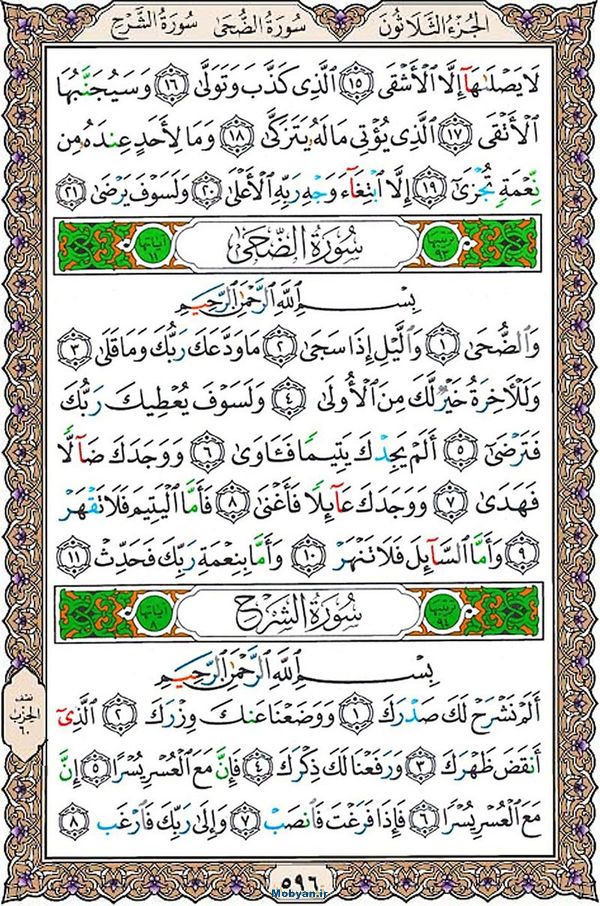 الجزء الثلاثون سورة الضحى سورة الشرح
لَا يَصْلَىٰهَآ إِلَّا ٱلْأَشْقَى ١٥ ٱلَّذِى كَذَّبَ وَتَوَلَّىٰ ١٦ وَسَيُجَنَّبُهَا
ٱلْأَتْقَى ١٧ ٱلَّذِى يُؤْتِى مَالَهُۥ يَتَزَكَّىٰ ١٨ وَمَا لِأَحَدٍ عِندَهُۥ مِن
نِّعْمَةٍ تُجْزَىٰٓ ١٩ إِلَّا ٱبْتِغَآءَ وَجْهِ رَبِّهِ ٱلْأَعْلَىٰ ٢٠ وَلَسَوْفَ يَرْضَىٰ ٢١
ترتيبها ٩٣ سُورَةُ الضُّحَىٰ آياتها ١١
بِسْمِ ٱللَّهِ ٱلرَّحْمَٰنِ ٱلرَّحِيمِ
وَٱلضُّحَىٰ ١ وَٱلَّيْلِ إِذَا سَجَىٰ ٢ مَا وَدَّعَكَ رَبُّكَ وَمَا قَلَىٰ ٣
وَلَلْـَٔاخِرَةُ خَيْرٌ لَّكَ مِنَ ٱلْأُولَىٰ ٤ وَلَسَوْفَ يُعْطِيكَ رَبُّكَ
فَتَرْضَىٰٓ ٥ أَلَمْ يَجِدْكَ يَتِيمًا فَـَٔاوَىٰ ٦ وَوَجَدَكَ ضَآلًّا
فَهَدَىٰ ٧ وَوَجَدَكَ عَآئِلًا فَأَغْنَىٰ ٨ فَأَمَّا ٱلْيَتِيمَ فَلَا تَقْهَرْ
٩ وَأَمَّا ٱلسَّآئِلَ فَلَا تَنْهَرْ ١٠ وَأَمَّا بِنِعْمَةِ رَبِّكَ فَحَدِّثْ ١١
ترتيبها ٩٤ سُورَةُ الشَّرْحِ آياتها ٨
بِسْمِ ٱللَّهِ ٱلرَّحْمَٰنِ ٱلرَّحِيمِ
أَلَمْ نَشْرَحْ لَكَ صَدْرَكَ ١ وَوَضَعْنَا عَنكَ وِزْرَكَ ٢ ٱلَّذِىٓ
أَنقَضَ ظَهْرَكَ ٣ وَرَفَعْنَا لَكَ ذِكْرَكَ ٤ فَإِنَّ مَعَ ٱلْعُسْرِ يُسْرًا ٥ إِنَّ
مَعَ ٱلْعُسْرِ يُسْرًا ٦ فَإِذَا فَرَغْتَ فَٱنصَبْ ٧ وَإِلَىٰ رَبِّكَ فَٱرْغَب ٨
نصف
الحزب
٦٠
٥٩٦
Mobyan.ir